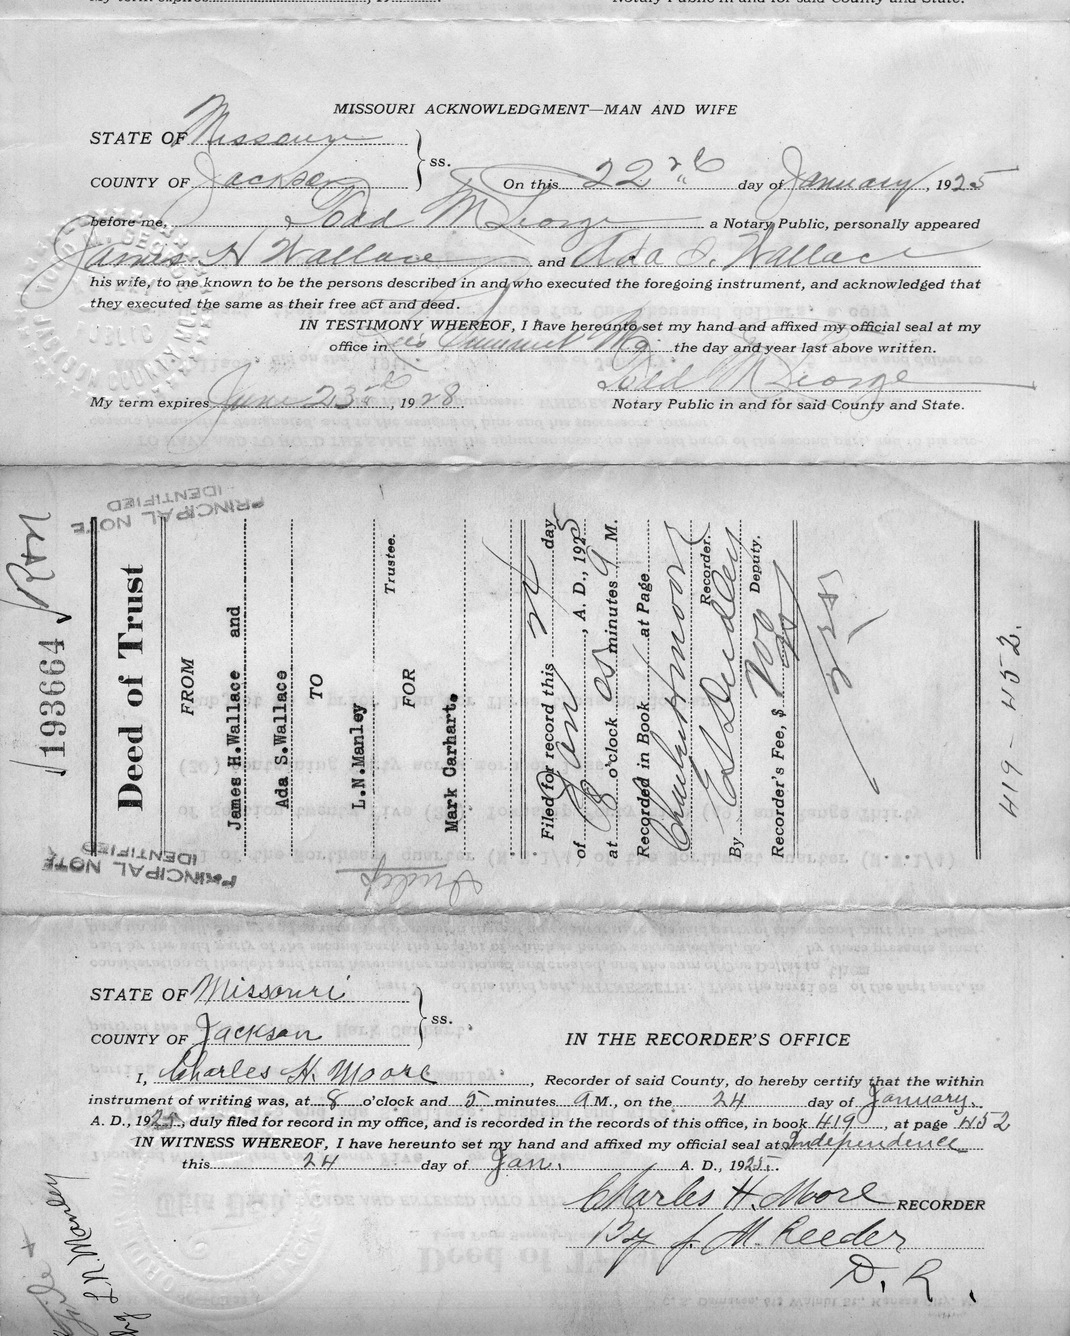 My term expires, 19.
Notary Public in and for said County and State.
MISSOURI ACKNOWLEDGMENT—MAN AND WIFE
STATE OF Missouri
ss.
COUNTY OF Jackson On this 22nd day of January, 1925
before me, Todd M George a Notary Public, personally appeared
James H Wallace and Ada S. Wallace
his wife, to me known to be the persons described in and who executed the foregoing instrument, and acknowledged that
they executed the same as their free act and deed.
IN TESTIMONY WHEREOF, I have hereunto set my hand and affixed my official seal at my
office in Lees Summit Mo. the day and year last above written.
Todd M George
My term expires June 23rd, 1928.
Notary Public in and for said County and State.
PRINCIPAL NOTE
IDENTIFIED
193664
Deed of Trust
FROM
James H.Wallace and
Ada S.Wallace
TO
L.N.Manley
Trustee.
FOR
Mark Carhart.
Filed for record this 24 day
of Jan, A. D., 1925
at 8 o'clock 05 minutes 9 M.
Recorded in Book at Page
Charles H Moore
Recorder.
By Deputy.
Recorder's Fee, $
419-452.
PRINCIPAL NOTE
IDENTIFIED
STATE OF Missouri
ss.
COUNTY OF Jackson
IN THE RECORDER'S OFFICE
I, Charles H. Moore, Recorder of said County, do hereby certify that the within
instrument of writing was, at 8 o'clock and 5 minutes 9 M., on the 24 day of January,
A. D., 1925, duly filed for record in my office, and is recorded in the records of this office, in book 419, at page 452
IN WITNESS WHEREOF, I have hereunto set my hand and affixed my official seal at Independence
this 24 day of Jan. A. D., 1925.
Charles H. Moore RECORDER
By J. M. Reeder
D. R.
L.N. Manley